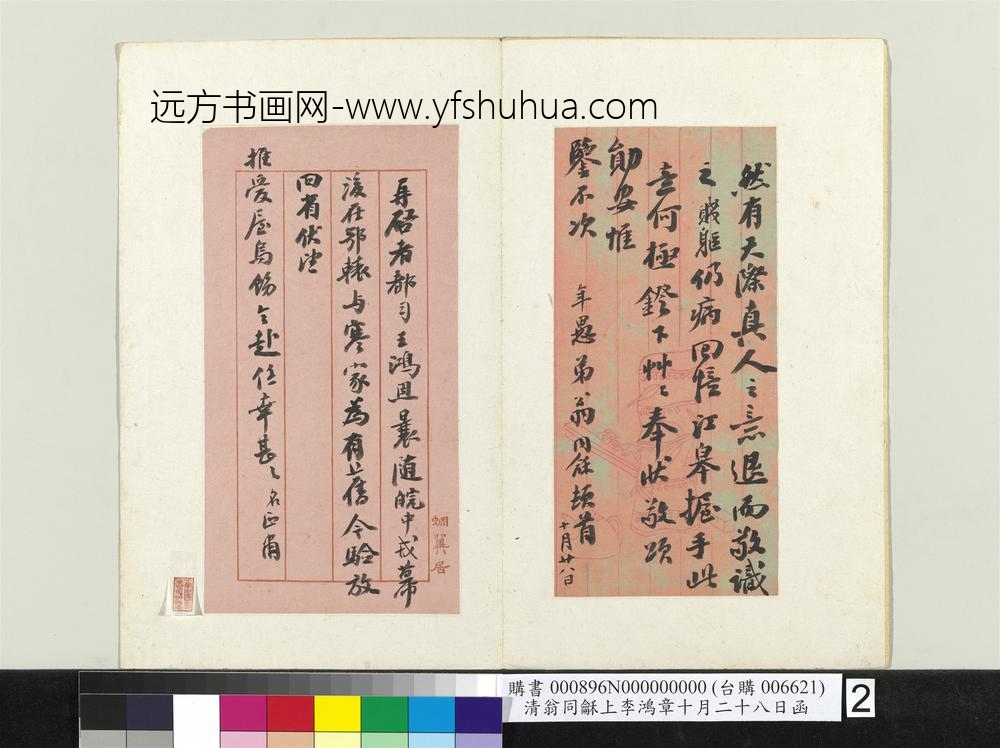 远方书画网-www.yfshuhua.com
然有天際真人之意退而敬識
之賤軀仍病回憶江皋握手此
意何極鐙下艸艸奉狀敬頌
勛安惟
鑒不次
年愚弟翁同龢頓首
十月廿八日
再啓者都司王鴻恩曩隨皖中戎幕
後在鄂轅与寒家為有舊今驗放
回省伏望
推愛屋烏飭令赴任幸甚々名正肅
蜩翼居
購書 000896N000000000 (台購 006621)
清翁同龢上李鴻章十月二十八日函
2